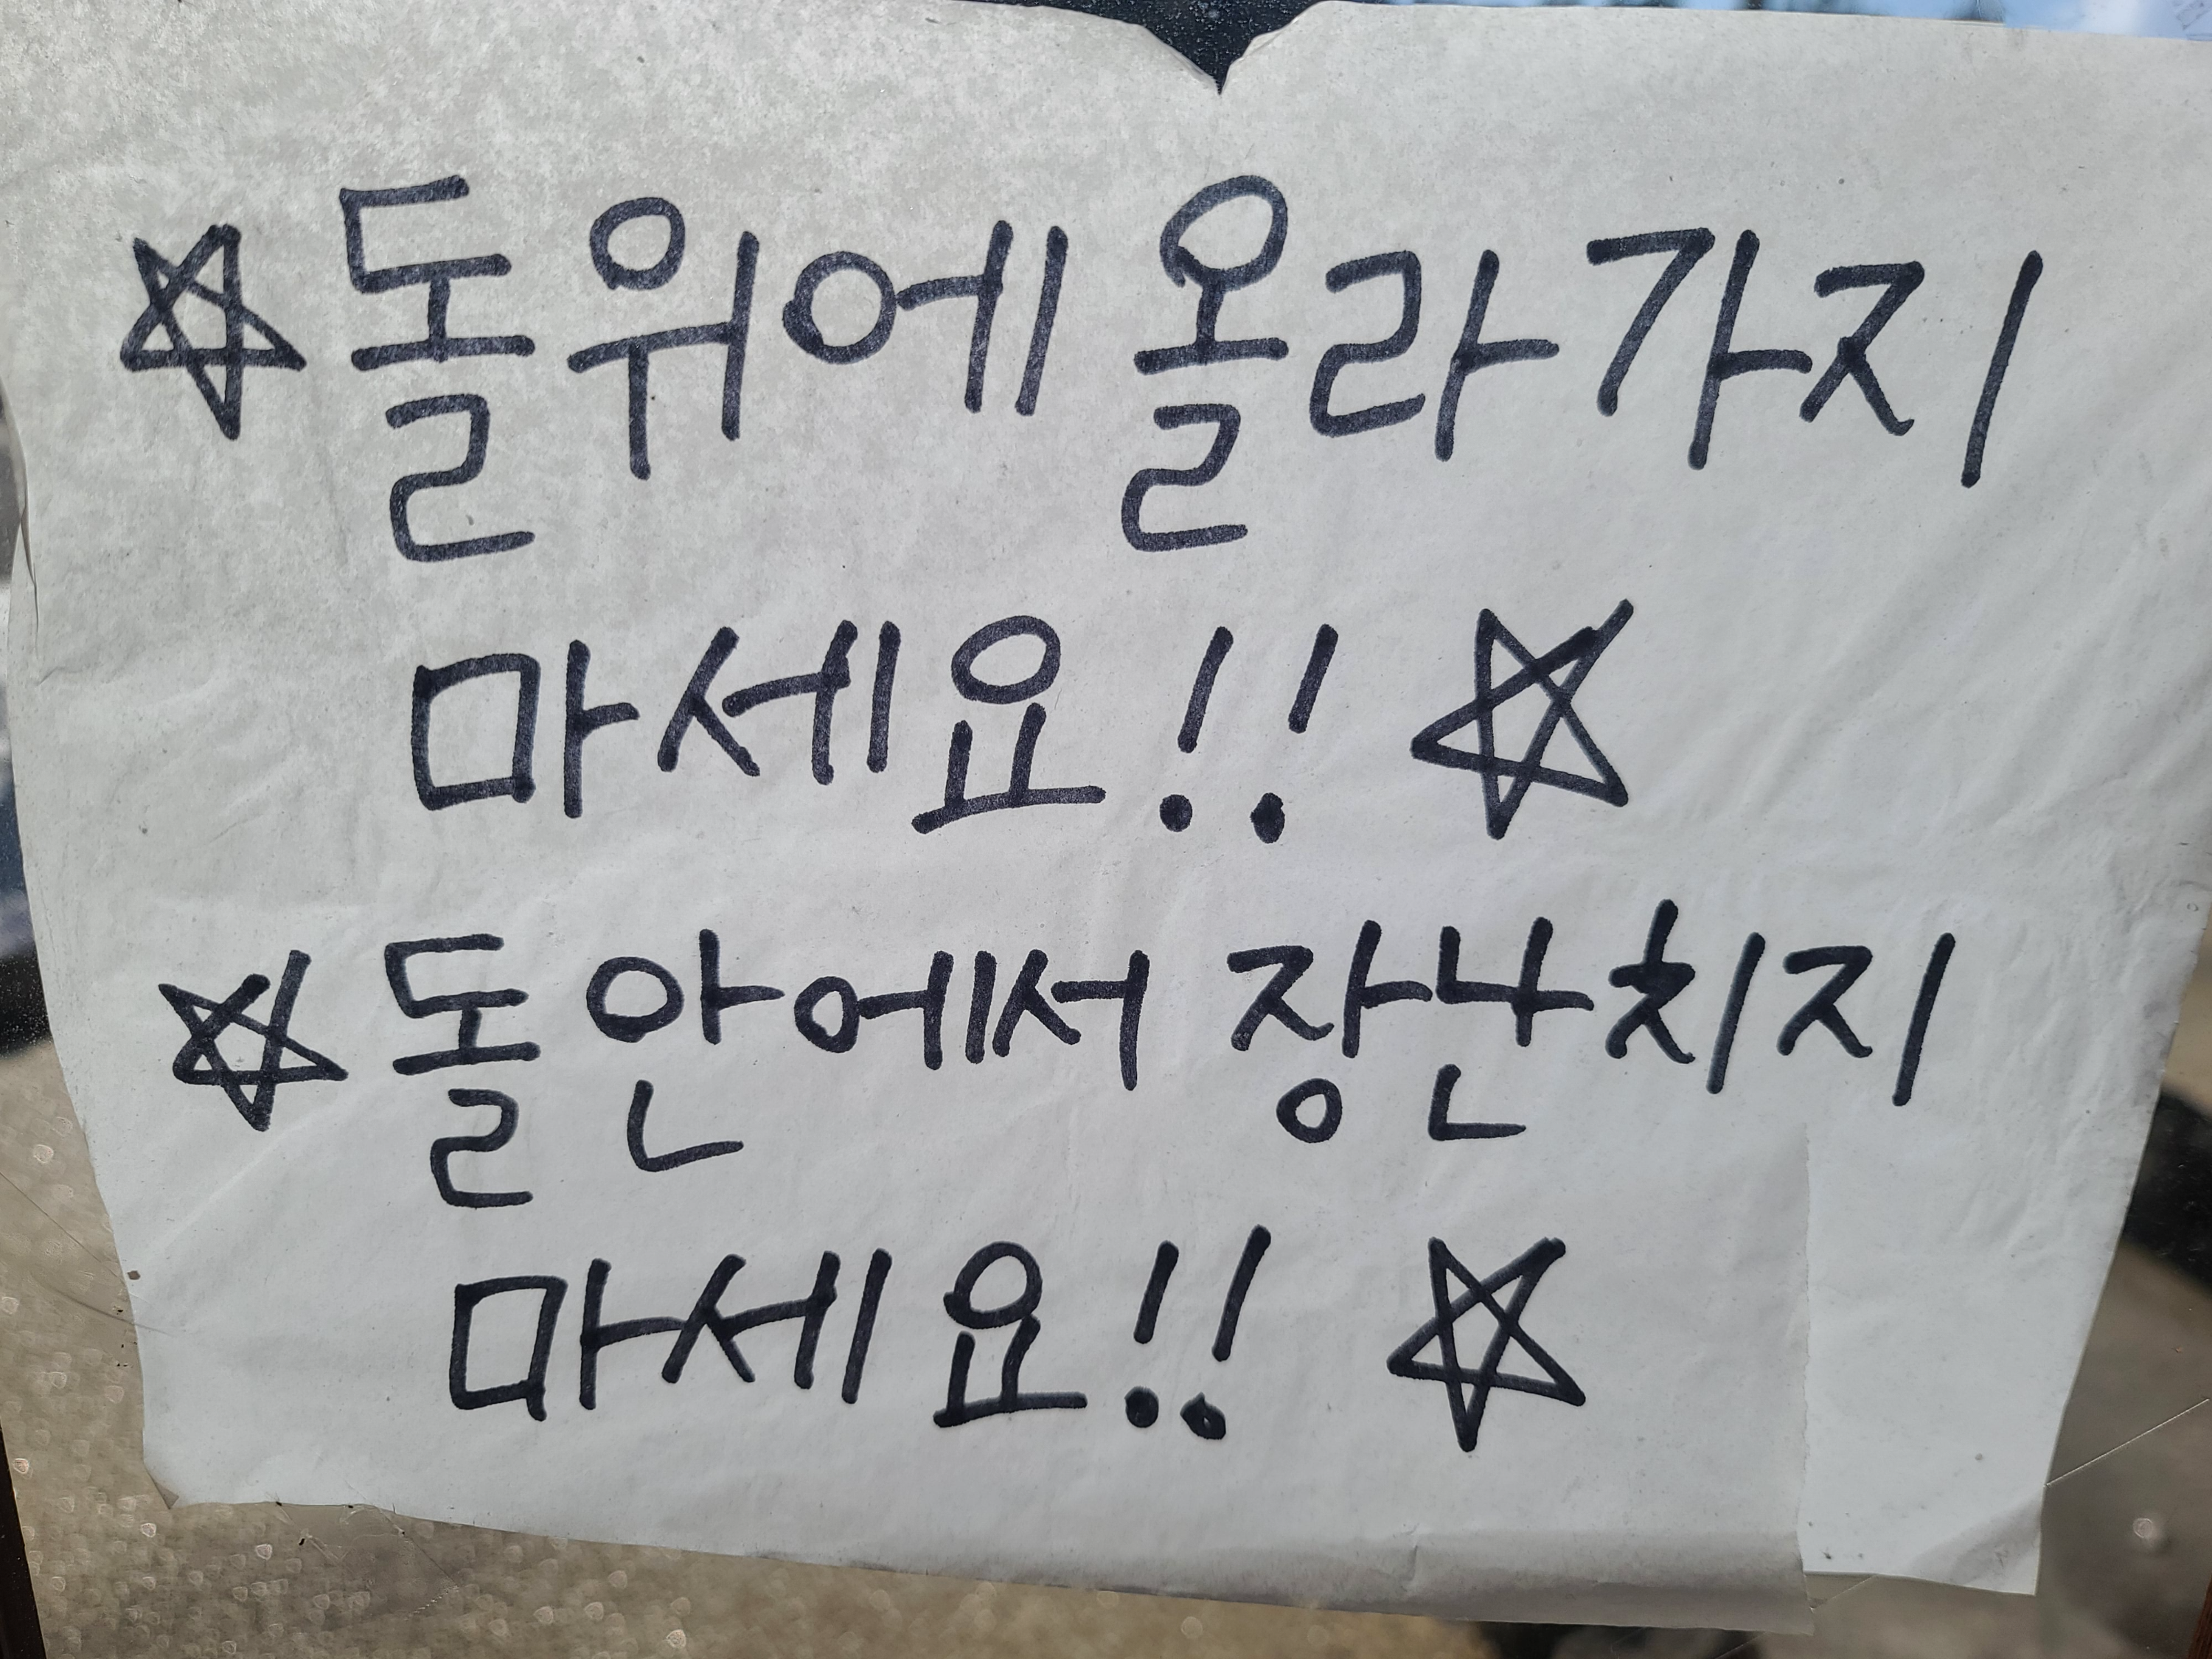 ☆돌위에 올라가지
마세요!! ☆
☆돌안에서 장난치지
마세요!! ☆